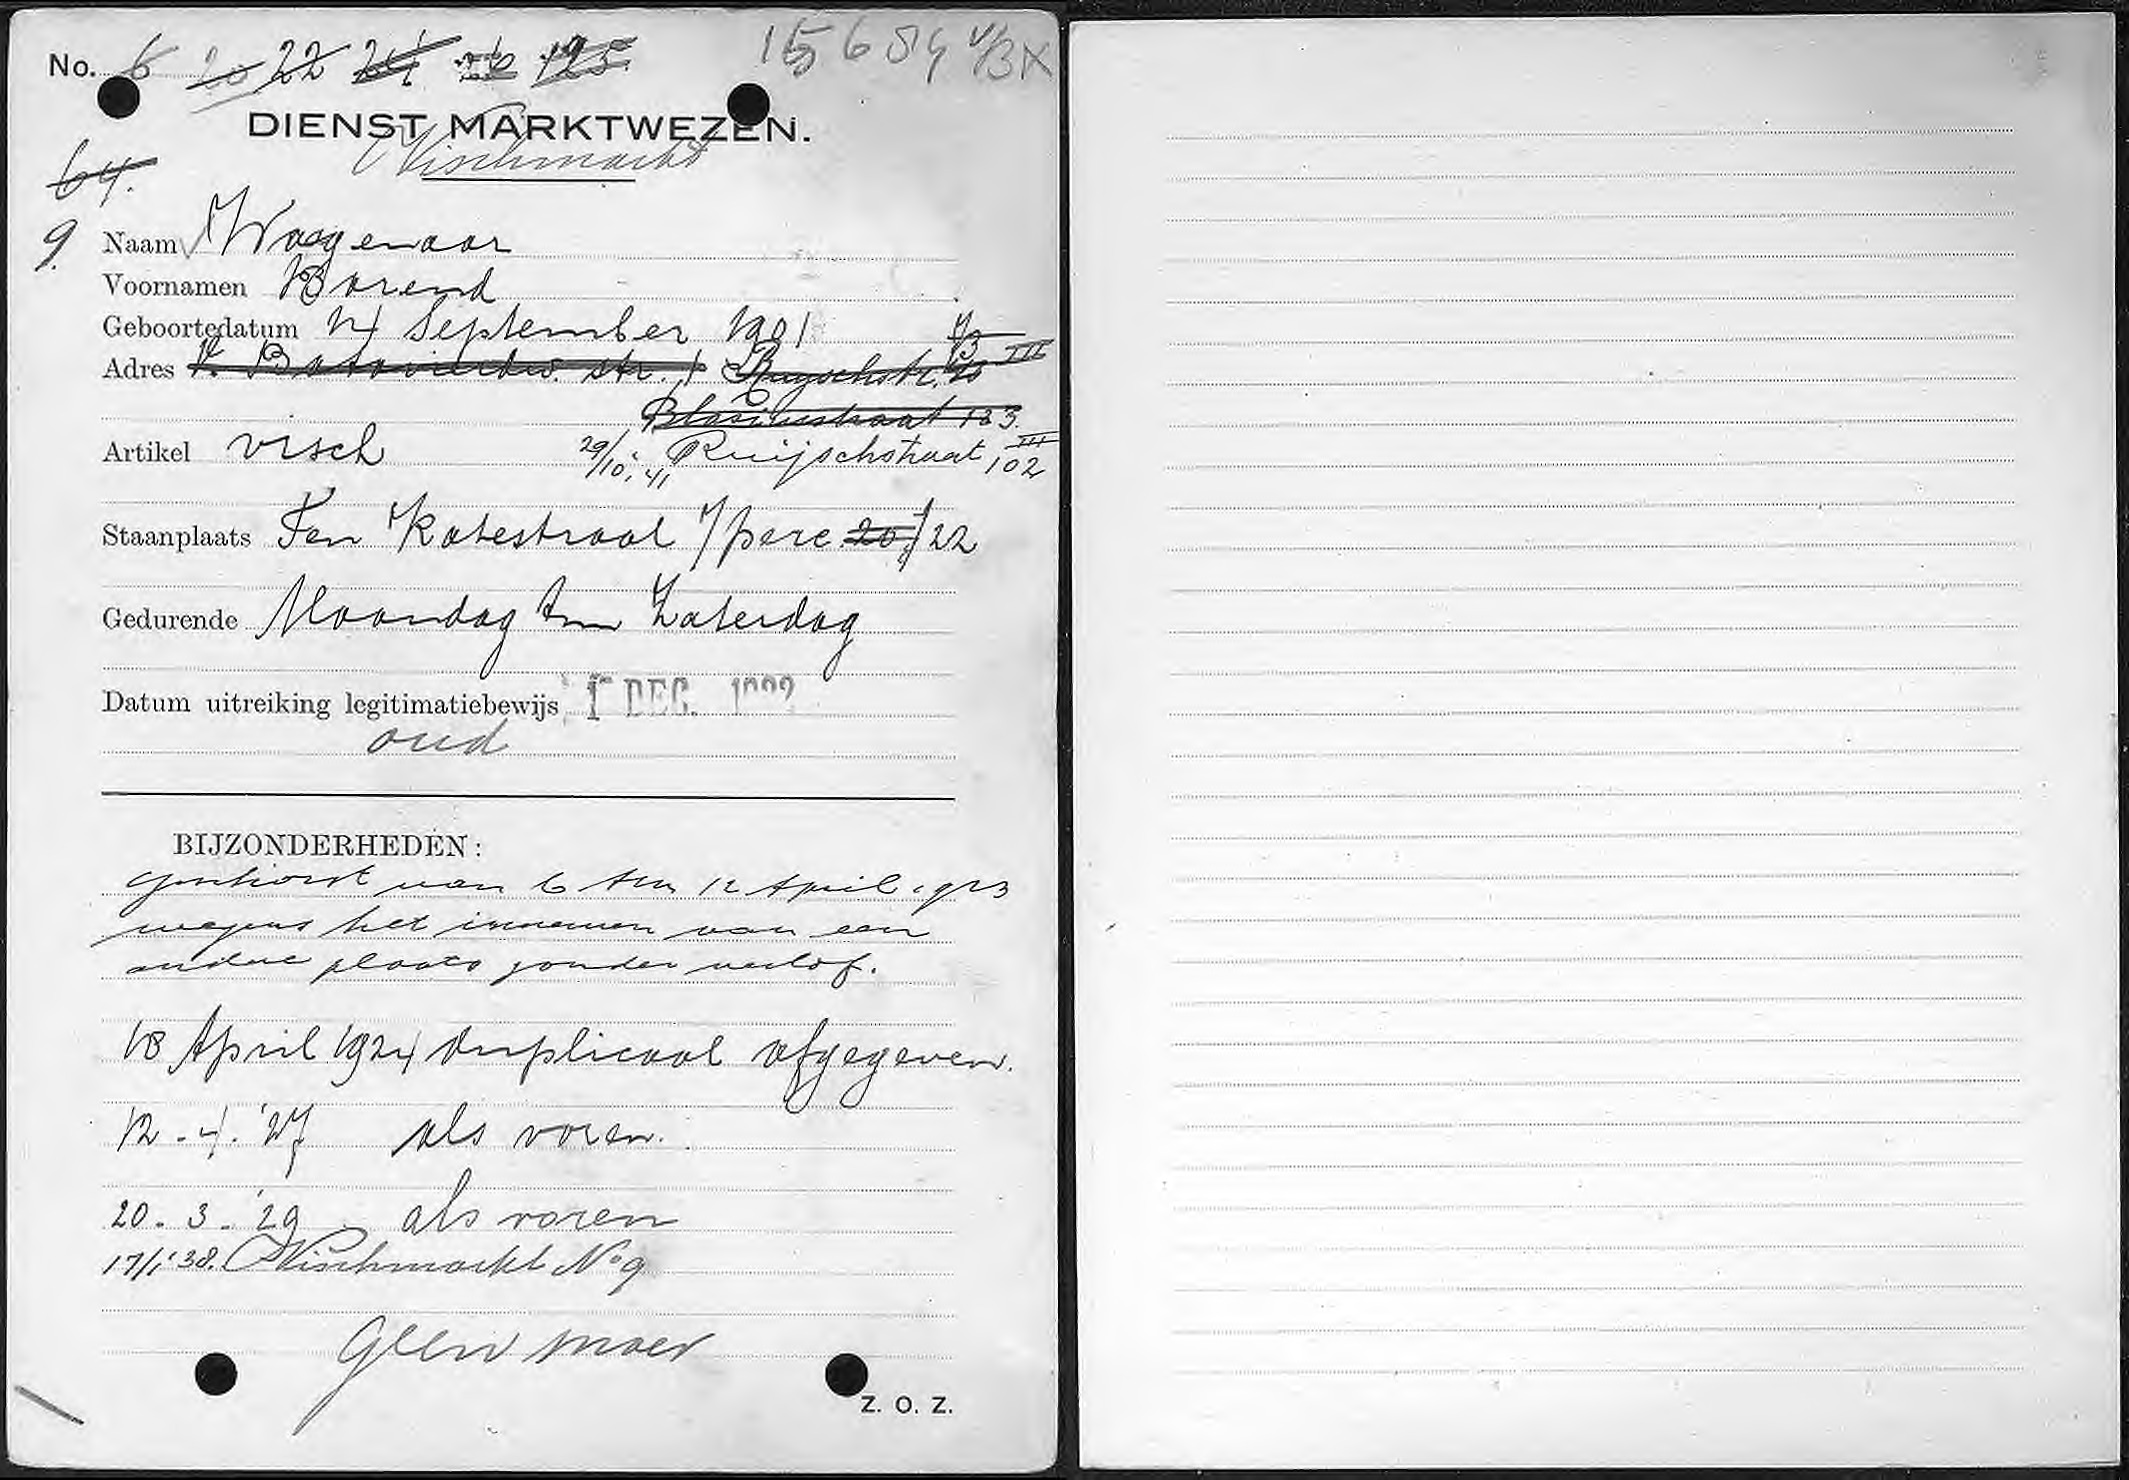 No. 6 20 22 24 26 195.
DIENST MARKTWEZEN.
Vischmarkt
64.
9.
Naam Wagenaar
Voornamen Barend
Geboortedatum 14 September 1901
Adres Batavierdw. str. 1 Ruyschstr.
Blasiusstraat 123
Artikel visch 29/10 '41 Ruijschstraat 102 III
Staanplaats Ten Katestraat t/perc. 20 / 22
Gedurende Maandag t/m Zaterdag
Datum uitreiking legitimatiebewijs 1 DEC. 1922
oud
BIJZONDERHEDEN:
Geschorst van 6 t/m 12 April 1923
wegens het innemen van een
andere plaats zonder verlof.
18 April 1924 duplicaat afgegeven.
12.4.'27 als voren.
20.3.'29 als voren
17/1 '38. Vischmarkt No 9
Geen moer
Z. O. Z.